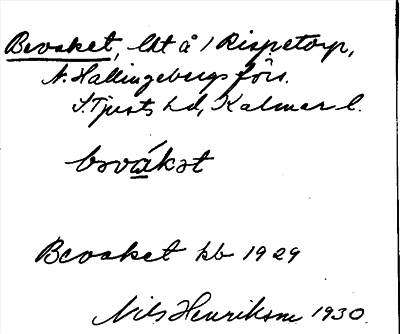 Bevaket, lht å 1 Rispetorp,
N. Hallingebergs förs.
S. Tjusts hd, Kalmar l.
bəvákət
Bevaket kb 1929
Nils Henrikson 1930.